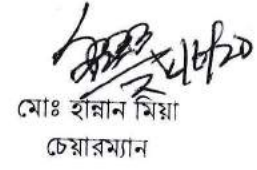 মোঃ হান্নান মিয়া
চেয়ারম্যান